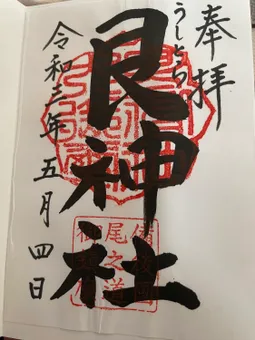 奉拝
うしとら
艮神社
令和三年五月四日
備後国
尾之道